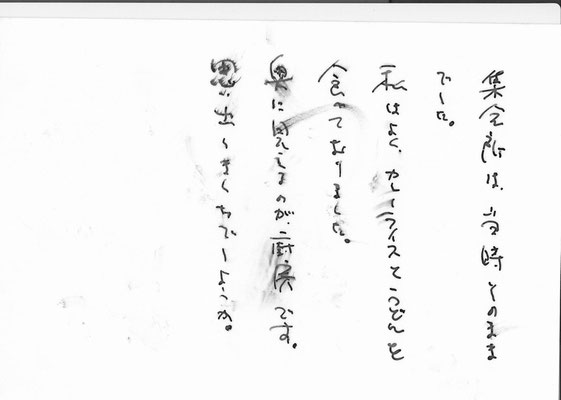 集会所は、当時そのまま
でした。
私はよく、カレーライスとうどんを
食っておりました。
奥に見えるのが、厨房です。
思い出しませんでしょうか。